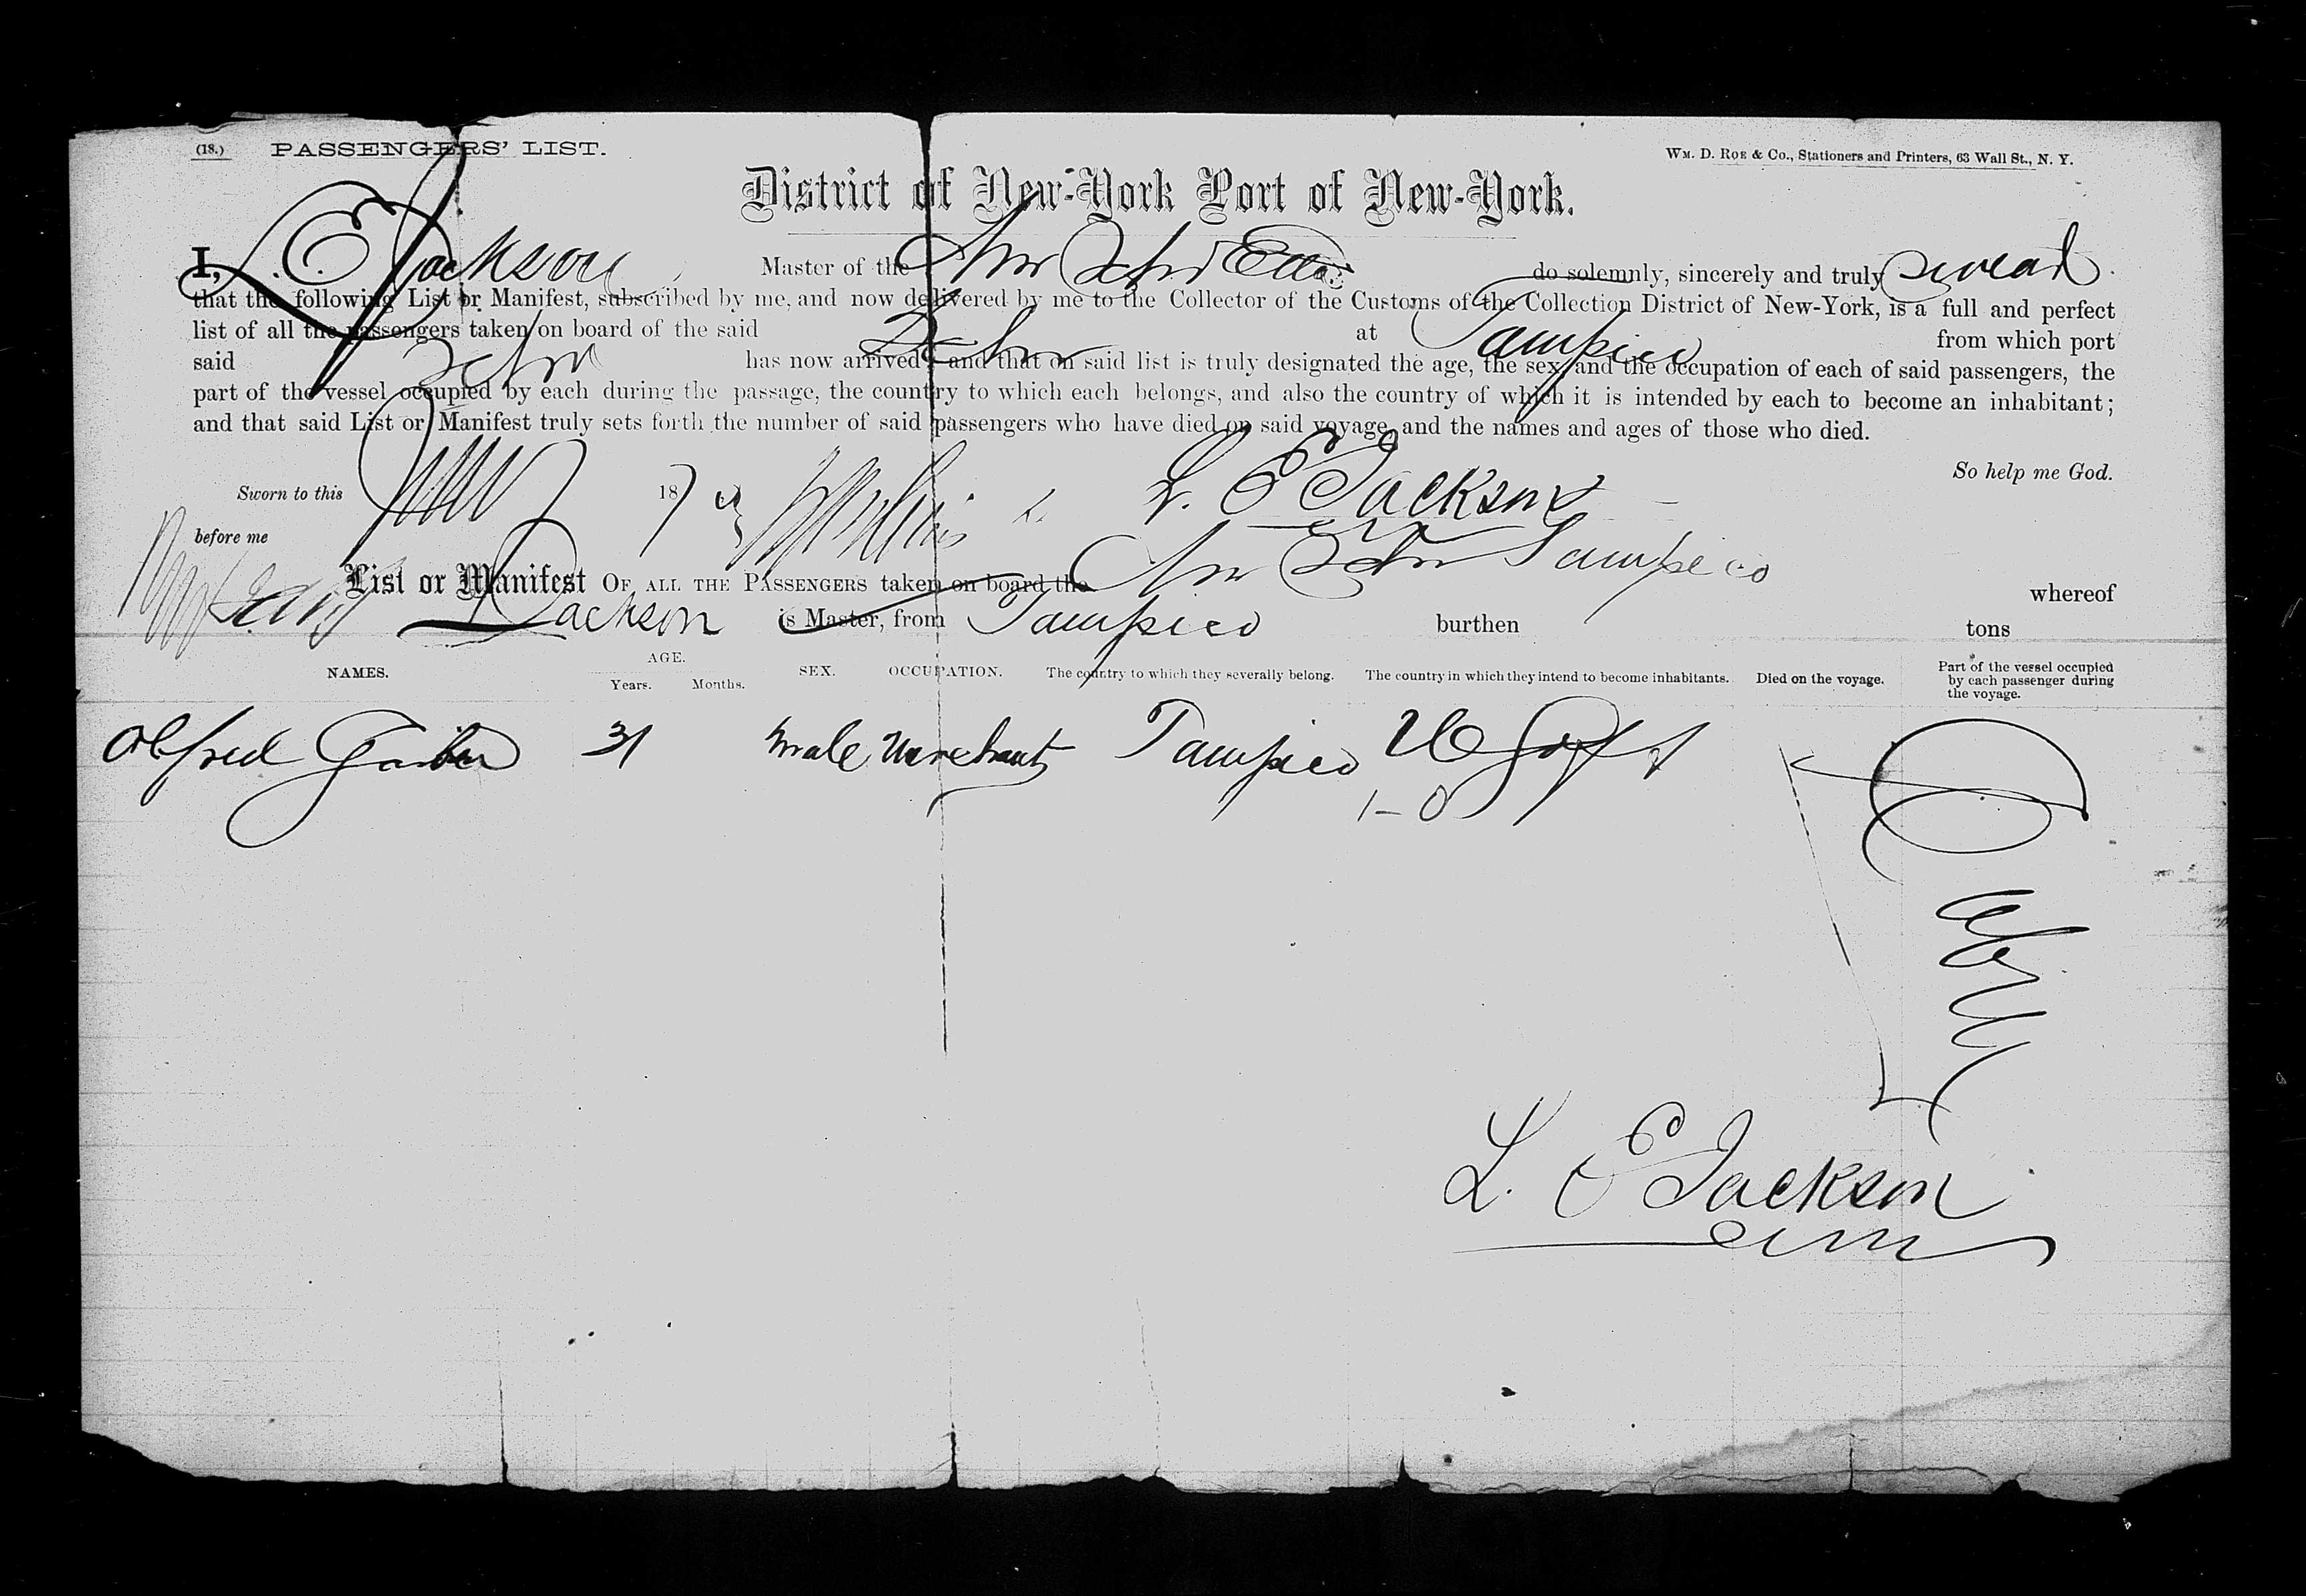 (18.) PASSENGERS' LIST. WM. D. ROE & CO., Stationers and Printers, 63 Wall St., N. Y.
District of New-York Port of New-York.
I, L. E. Jackson Master of the Am Schr Etta do solemnly, sincerely and truly swear
that the following List or Manifest, subscribed by me, and now delivered by me to the Collector of the Customs of the Collection District of New-York, is a full and perfect
list of all the passengers taken on board of the said Schr at Tampico from which port
said Schr has now arrived; and that on said list is truly designated the age, the sex, and the occupation of each of said passengers, the
part of the vessel occupied by each during the passage, the country to which each belongs, and also the country of which it is intended by each to become an inhabitant;
and that said List or Manifest truly sets forth the number of said passengers who have died on said voyage, and the names and ages of those who died.
So help me God.
Sworn to this 187 L. E Jackson
before me
List or Manifest OF ALL THE PASSENGERS taken on board the Am Schr Tampico whereof
Jackson is Master, from Tampico burthen tons
NAMES. AGE. Years. Months. SEX. OCCUPATION. The country to which they severally belong. The country in which they intend to become inhabitants. Died on the voyage. Part of the vessel occupied by each passenger during the voyage.
Alfred 31 male Merchant Tampico
1-0
Cabin
L. E Jackson